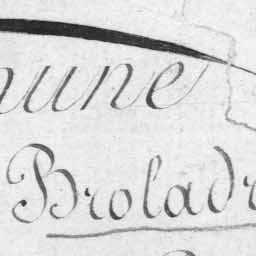 mune
Broladr